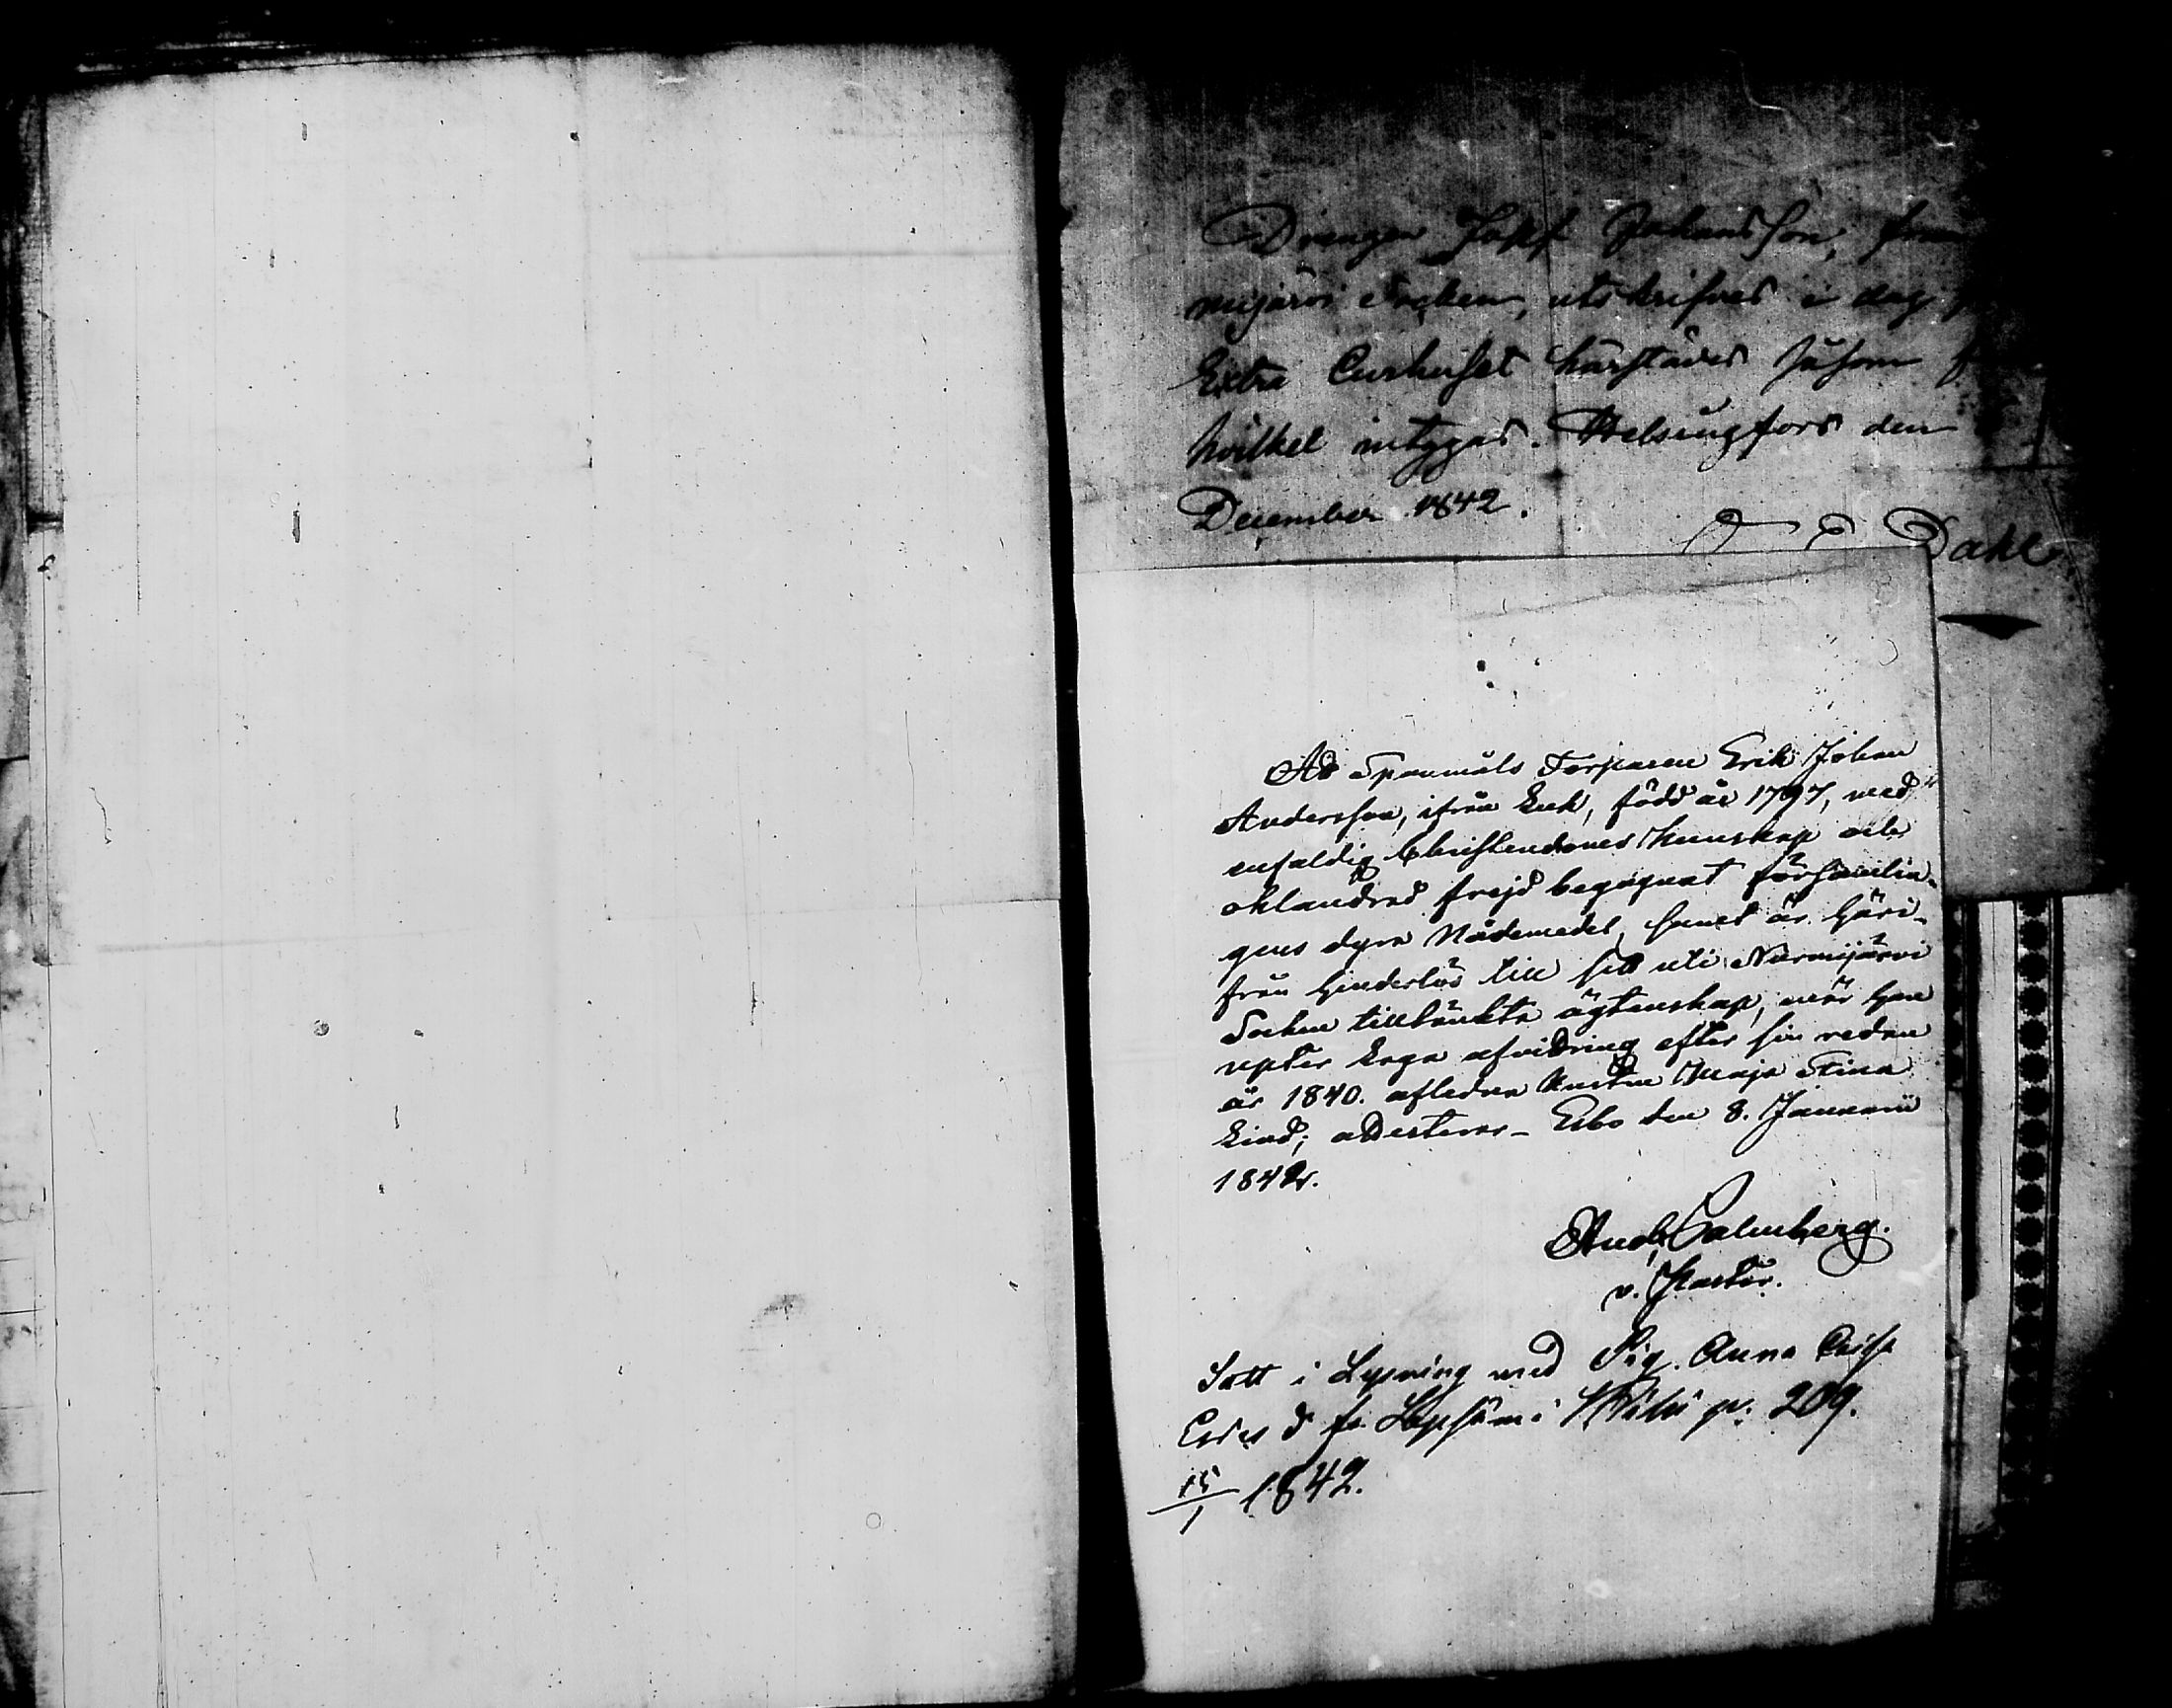 Drengen Johansson, från
mijärvi Socken, utskrifves i dag
Extra Curhuset härstädes såsom
hvilket intygas. Helsingfors den
December 1842.
Dahl
At Spanmåls Torparen Erik Johan
Andersson, ifrån född år 1797, med
enfaldig Christendoms kunskap och
oklandrad frejd begagnat församlin-
gens dyra Nådemedel, samt är häri-
från hinderlös till sitt uti Nurmijärvi
Socken tilltänkta ägtenskap, när han
upter laga afvittring efter sin redan
år 1840. aflidna hustru Maja Stina
Lind; attesteras - Esbo den 8. Januarii
1842.
And. Calenberg.
v. Pastor.
Satt i Lysning med Pig. Anna Caisa
Ersd. fr. Lepsäm i p. 209.
15/1 1842.